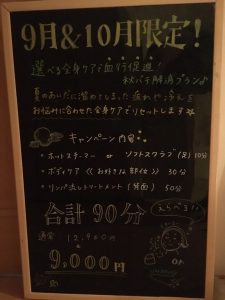 9月&10月限定!
選べる全身ケアで血行促進!
秋バテ解消プラン♪
夏のあいだに溜めてしまった疲れや冷えを
お悩みに合わせた全身ケアでリセットします☆
キャンペーン内容
・ホットスチーマー or ソフトスクラブ(足) 10分
・ボディケア《お好きな部位》 30分
・リンパ流しトリートメント(背面) 50分
合計 90分
通常 12,960円
9,000円
えらべる!!
or